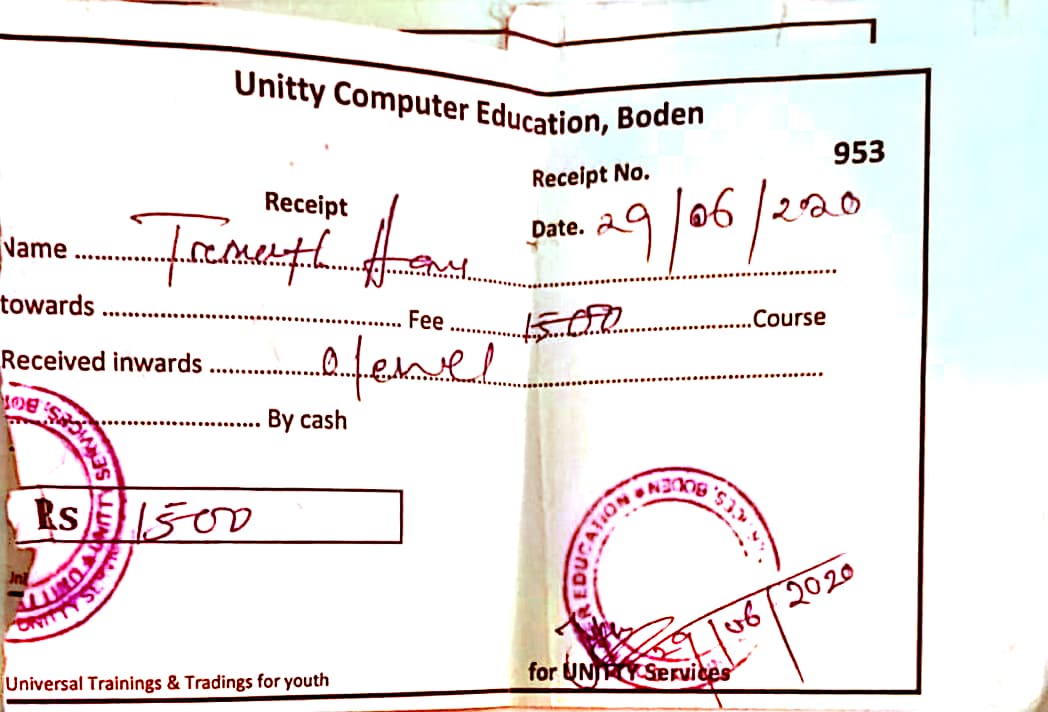 Unitty Computer Education, Boden
Receipt No. 953
Receipt
Date. 29/06/2020
Name
towards Fee 1500 Course
Received inwards
By cash
Rs 1500
EDUCATION BODEN
29/06/2020
for UNITTY Services
Universal Trainings & Tradings for youth